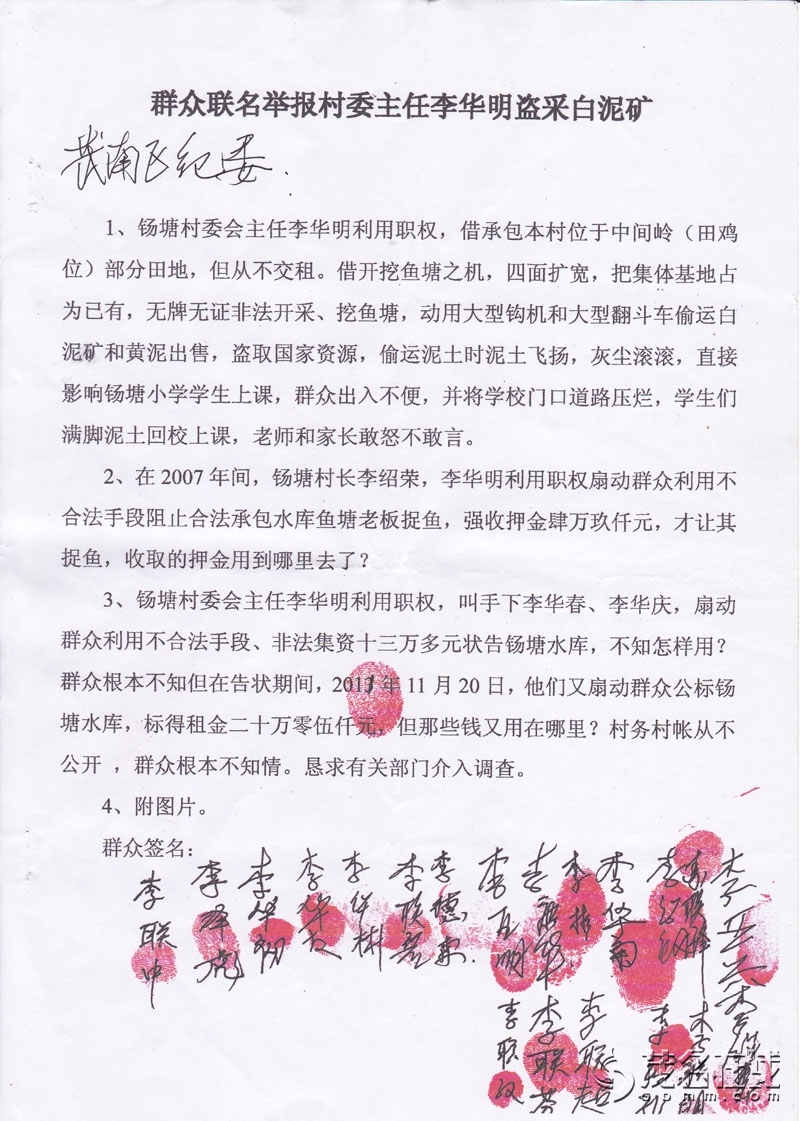 群众联名举报村委主任李华明盗采白泥矿
茂南区纪委.
1、钖塘村委会主任李华明利用职权，借承包本村位于中间岭（田鸡
位）部分田地，但从不交租。借开挖鱼塘之机，四面扩宽，把集体基地占
为已有，无牌无证非法开采、挖鱼塘，动用大型钩机和大型翻斗车偷运白
泥矿和黄泥出售，盗取国家资源，偷运泥土时泥土飞扬，灰尘滚滚，直接
影响钖塘小学学生上课，群众出入不便，并将学校门口道路压烂，学生们
满脚泥土回校上课，老师和家长敢怒不敢言。
2、在 2007 年间，钖塘村长李绍荣，李华明利用职权扇动群众利用不
合法手段阻止合法承包水库鱼塘老板捉鱼，强收押金肆万玖仟元，才让其
捉鱼，收取的押金用到哪里去了？
3、钖塘村委会主任李华明利用职权，叫手下李华春、李华庆，扇动
群众利用不合法手段、非法集资十三万多元状告钖塘水库，不知怎样用？
群众根本不知但在告状期间，2011 年 11 月 20 日，他们又扇动群众公标钖
塘水库，标得租金二十万零伍仟元，但那些钱又用在哪里？村务村帐从不
公开 ，群众根本不知情。恳求有关部门介入调查。
4、附图片。
群众签名：
李联中
李华初
李华彬
李华南
李联芬
李联超
茂名在线
gpmm.com